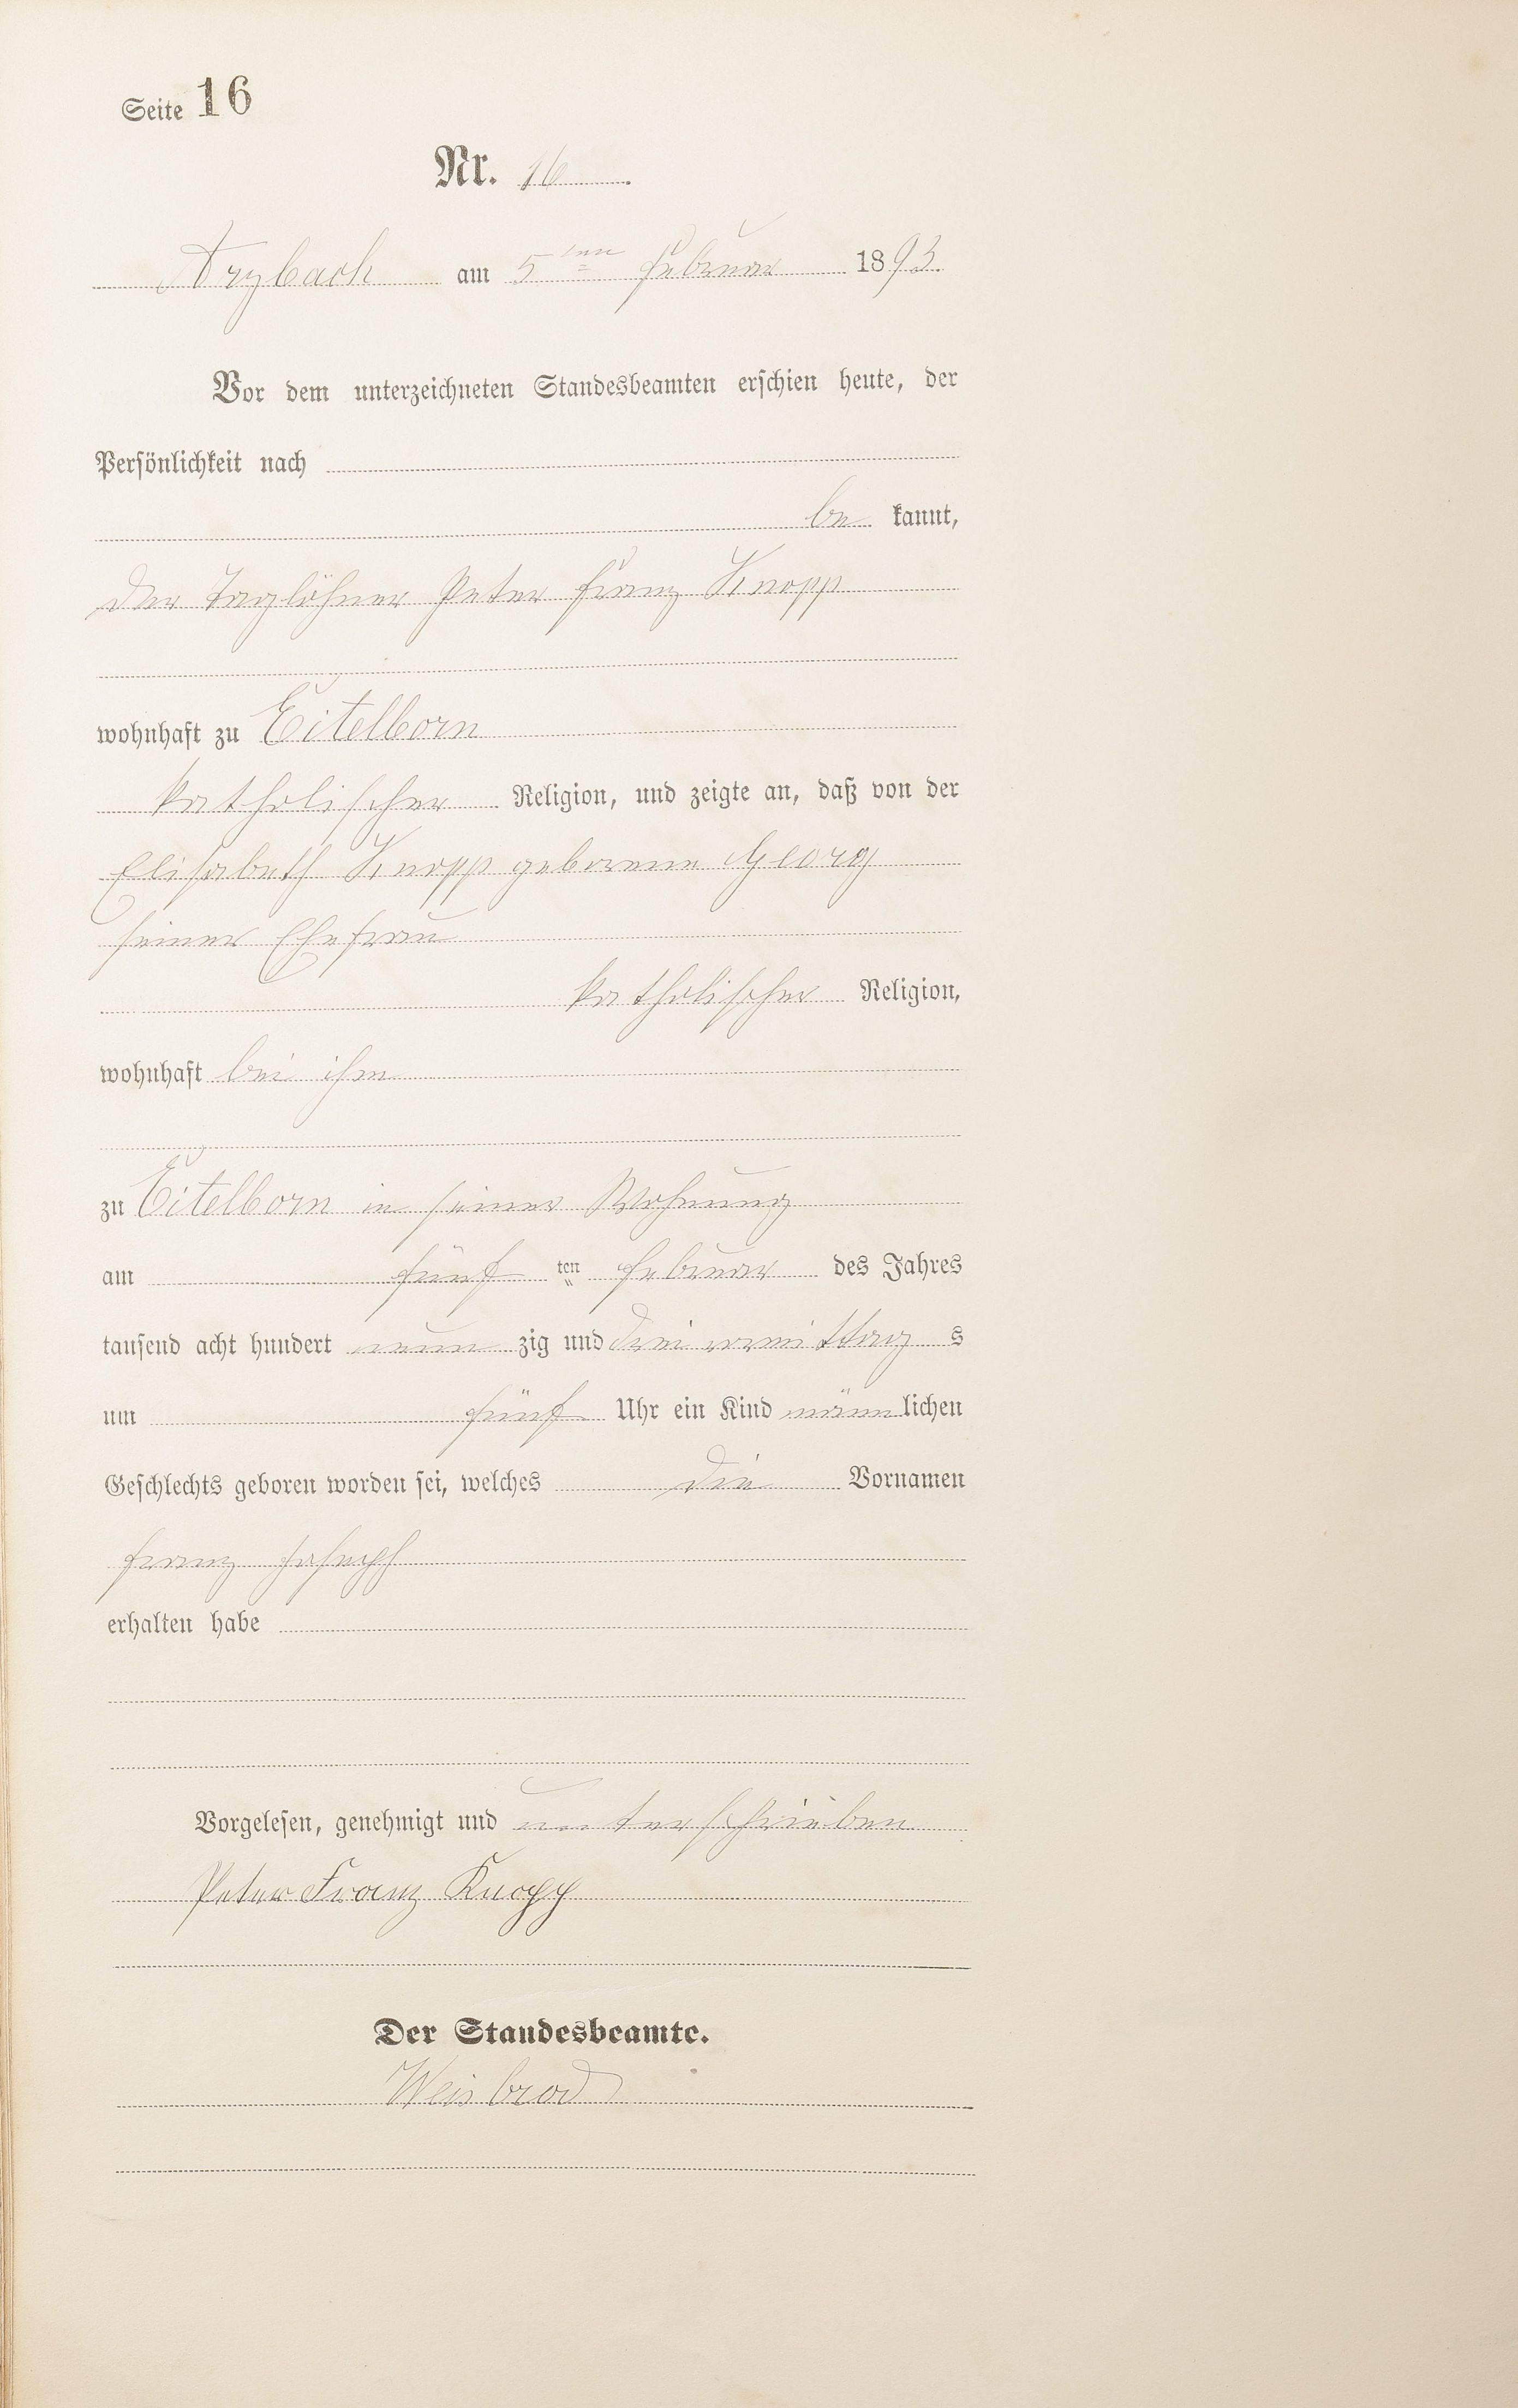 Seite 16
Nr. 16
Arzbach am 5ten Februar 1893.
Vor dem unterzeichneten Standesbeamten erschien heute, der
Persönlichkeit nach
be kannt,
der Taglöhner Peter Franz Knopp
wohnhaft zu Eitelborn
katholischer Religion, und zeigte an, daß von der
Elisabeth Knopp geborene Georg
seiner Ehefrau
katholischer Religion,
wohnhaft bei ihm
zu Eitelborn in seiner Wohnung
am fünf ten Februar des Jahres
tausend acht hundert neun zig und drei vormittag s
um fünf Uhr ein Kind männ lichen
Geschlechts geboren worden sei, welches die Vornamen
Franz Joseph
erhalten habe
Vorgelesen, genehmigt und unterschrieben
Peter Franz Knopp
Der Standesbeamte.
Weisbrod